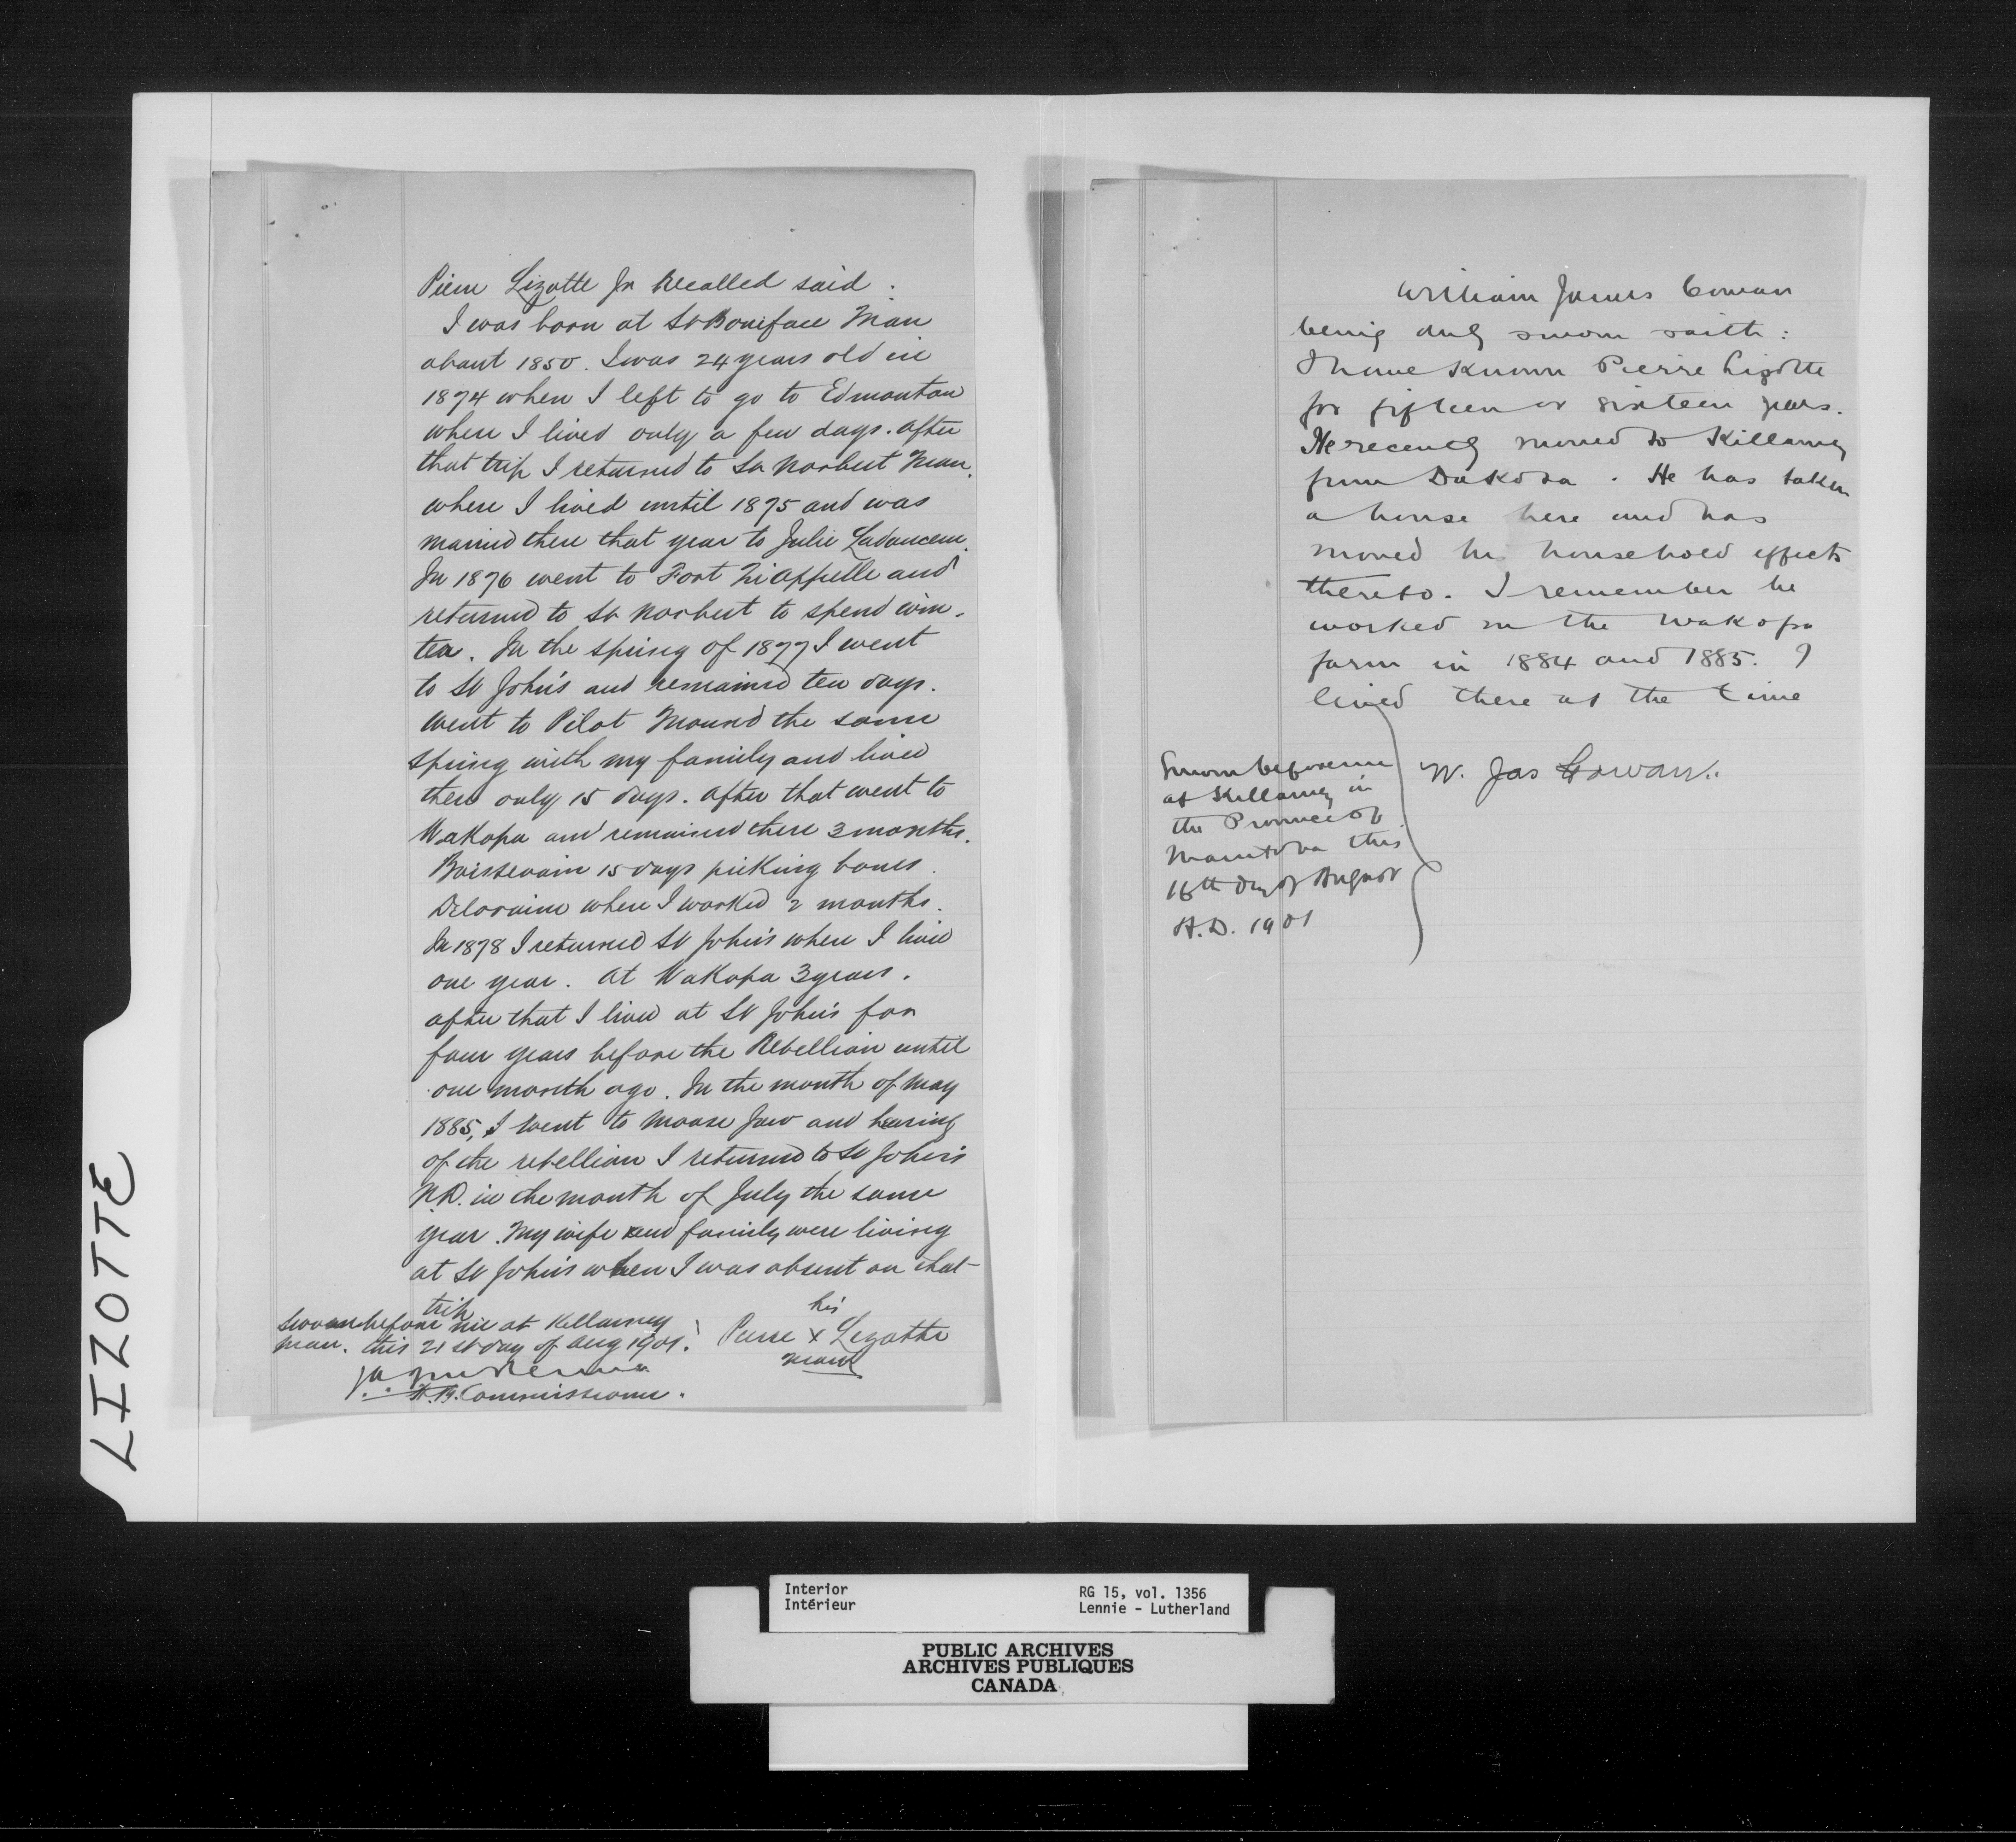 Pierre Lizotte Jr Recalled said.
I was born at St Boniface Man
about 1850. I was 24 years old in
1874 when I left to go to Edmonton
where I lived only a few days. After
that trip I returned to St Norbert Man.
where I lived until 1875 and was
married there that year to Julie Ladouceur.
In 1876 went to Fort Qu'Appelle and
returned to St Norbert to spend win-
ter. In the spring of 1877 I went
to St John's and remained ten days.
Went to Pilot Mound the same
spring with my family and lived
there only 15 days. After that went to
Wakopa and remained there 3 months.
Boissevain 15 days picking bones.
Deloraine where I worked 2 months.
In 1878 I returned St John's where I lived
one year. At Wakopa 3 years.
after that I lived at St John's for
four years before the Rebellion until
one month ago. In the month of May
1885, I went to Moose Jaw and hearing
of the rebellion I returned to St John's
N.D. in the month of July the same
year. My wife and family were living
at St John's when I was absent on that
trip
Sworn before me at Killarney
Man. this 21st day of Aug 1901.
his
Pierre x Lizotte
mark
H.B. Commissioner.
William James Cowan
being duly sworn saith:
I have known Pierre Lizotte
for fifteen or sixteen years.
He recently moved to Killarney
from Dakota. He has taken
a house here and has
moved his household effects
thereto. I remember he
worked on the Wakopa
farm in 1884 and 1885. I
lived there at the time
Sworn before me
at Killarney in
the Province of
Manitoba this
16th day of August
A.D. 1901
W. Jas Cowan.
LIZOTTE
Interior
Intérieur
RG 15, vol. 1356
Lennie - Lutherland
PUBLIC ARCHIVES
ARCHIVES PUBLIQUES
CANADA